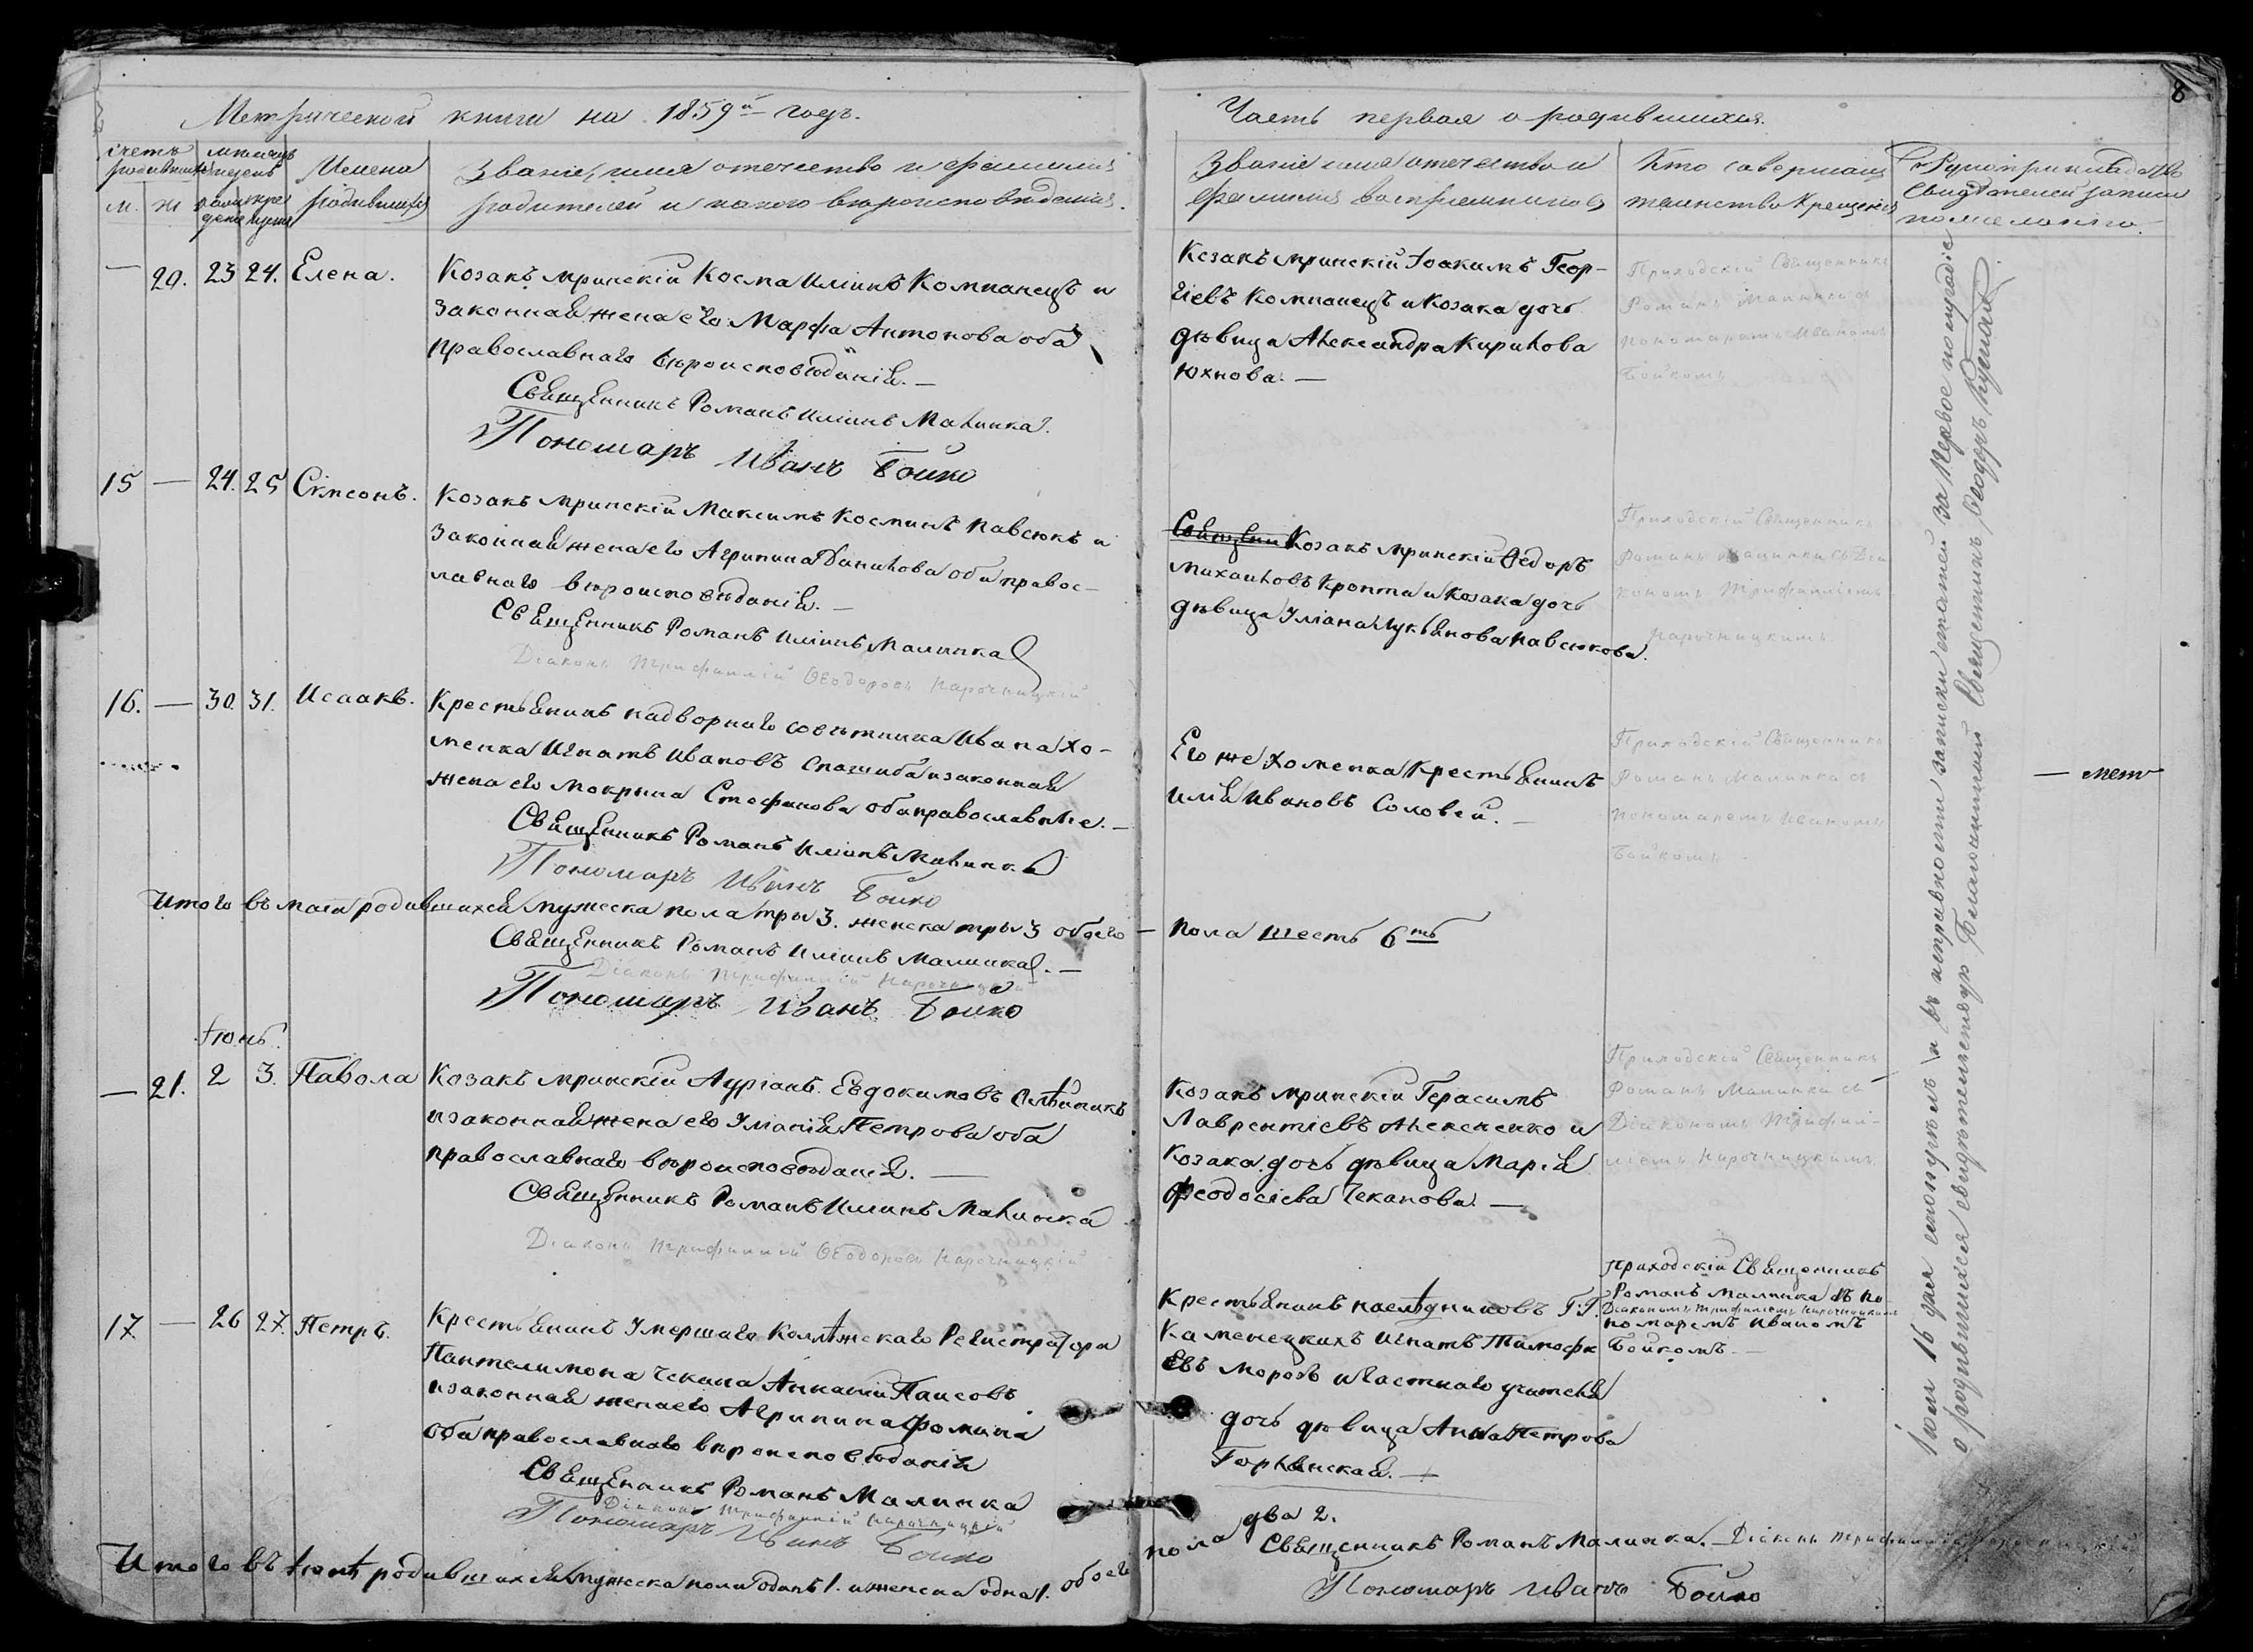 8
Метрической книги на 1859й годъ.
Часть первая о родившихся.
счетъ родившихся
м.
ж
мѣсяцъ
рожденія
крещенія
Имена
родившихся
Званіе, имя отечество и фамилія
родителей и какого вѣроисповѣданія.
Званіе имя отечество и
фамилія воспріемниковъ
Кто совершалъ
таинство крещенія
Рукоприкладство
свидѣтелей записи
по желанію.
— 20. 23 24. Елена.
Козакъ мринскій Косма Иліинъ Компанецъ и
законная жена его Марфа Антонова оба
православнаго вѣроисповѣданія. —
Священникъ Романъ Иліинъ Малинка.
Пономаръ Иванъ Бойко
Козакъ мринскій Іоакимъ Геор-
гіевъ Компанецъ и Козака дочь
дѣвица Александра Кирилова
Юхнова. —
Приходскій Священникъ
Романъ Малинка съ
пономаремъ Иваномъ
Бойкомъ
15 — 24. 25 Сѵмеонъ.
Козакъ мринскій Максимъ Косминъ Павсюкъ и
законная жена его Агрипина Данилова оба правос-
лавнаго вѣроисповѣданія. —
Священникъ Романъ Иліинъ Малинка
Діаконъ Трифиллій Ѳеодоровъ Нарочницкій
Козакъ мринскій Ѳедоръ
Михаиловъ Кропта и Козака дочь
дѣвица Уліана Лукьянова Павсюкова.
Приходскій Священникъ
Романъ Малинка съ Діа
кономъ Трифилліемъ
Нарочницкимъ
16. — 30. 31. Исаакъ.
Крестьянинъ надворнаго совѣтника Ивана Хо-
менка Игнатъ Ивановъ и законная
жена его Мокрина Стефанова оба православные. —
Священникъ Романъ Иліинъ Малинка
Пономаръ Иванъ Бойко
Его же Хоменка Крестьянинъ
Илія Ивановъ Соловей. —
Приходскій Священникъ
Романъ Малинка съ
пономаремъ Иваномъ
Бойкомъ
— нетъ
Итого въ маіи родившихся мужеска пола три 3. женска три 3 обоего —
пола шесть 6ть
Священникъ Романъ Иліинъ Малинка. —
Діаконъ Трифиллій Нарочницкій
Пономаръ Иванъ Бойко
Іюнь.
— 21. 2 3. Павола
Козакъ мринскій Авдокимовъ Олѣйникъ
и законная жена его Уліанія Петрова оба
православнаго вѣроисповѣданія. —
Священникъ Романъ Иліинъ Малинка
Діаконъ Трифиллій Ѳеодоровъ Нарочницкій
Козакъ мринскій Герасимъ
Лаврентіевъ Алексеенко и
Козака дочь дѣвица Марія
Феодосіева Чеканова. —
Приходскій Священникъ
Романъ Малинка съ
Діакономъ Трифил-
ліемъ Нарочницкимъ
17. — 26 27. Петръ.
Крестьянинъ Умершаго Коллѣжскаго Регистратора
Пантелимона Чекана Паисовъ
и законная жена его Агрипина Фомина
оба православнаго вѣроисповѣданія
Священникъ Романъ Малинка
Діаконъ Трифиллій Нарочницкій
Пономаръ Иванъ Бойко
Крестьянинъ наслѣдниковъ Г:Г.
Каменецкихъ Игнатъ Тимофѣ
евъ Морозъ и частнаго учителя
дочь дѣвица Анна Петрова
Горѣанская. —
Приходскій Священникъ
Романъ Малинка съ по-
Діакономъ Трифилліемъ Нарочницкимъ
номаремъ Иваномъ
Бойкомъ. —
Итого въ Іюнѣ родившихся мужеска пола одинъ 1. и женска одна 1. обоего
пола два 2.
Священникъ Романъ Малинка. — Діаконъ Трифиллій Нарочницкій
Пономаръ Иванъ Бойко
Іюля 16 дня слогумъ и въ исправности записки статей за первое полугодіе
о родившихся свидѣтельствую Благочинный Священникъ Ѳеодоръ